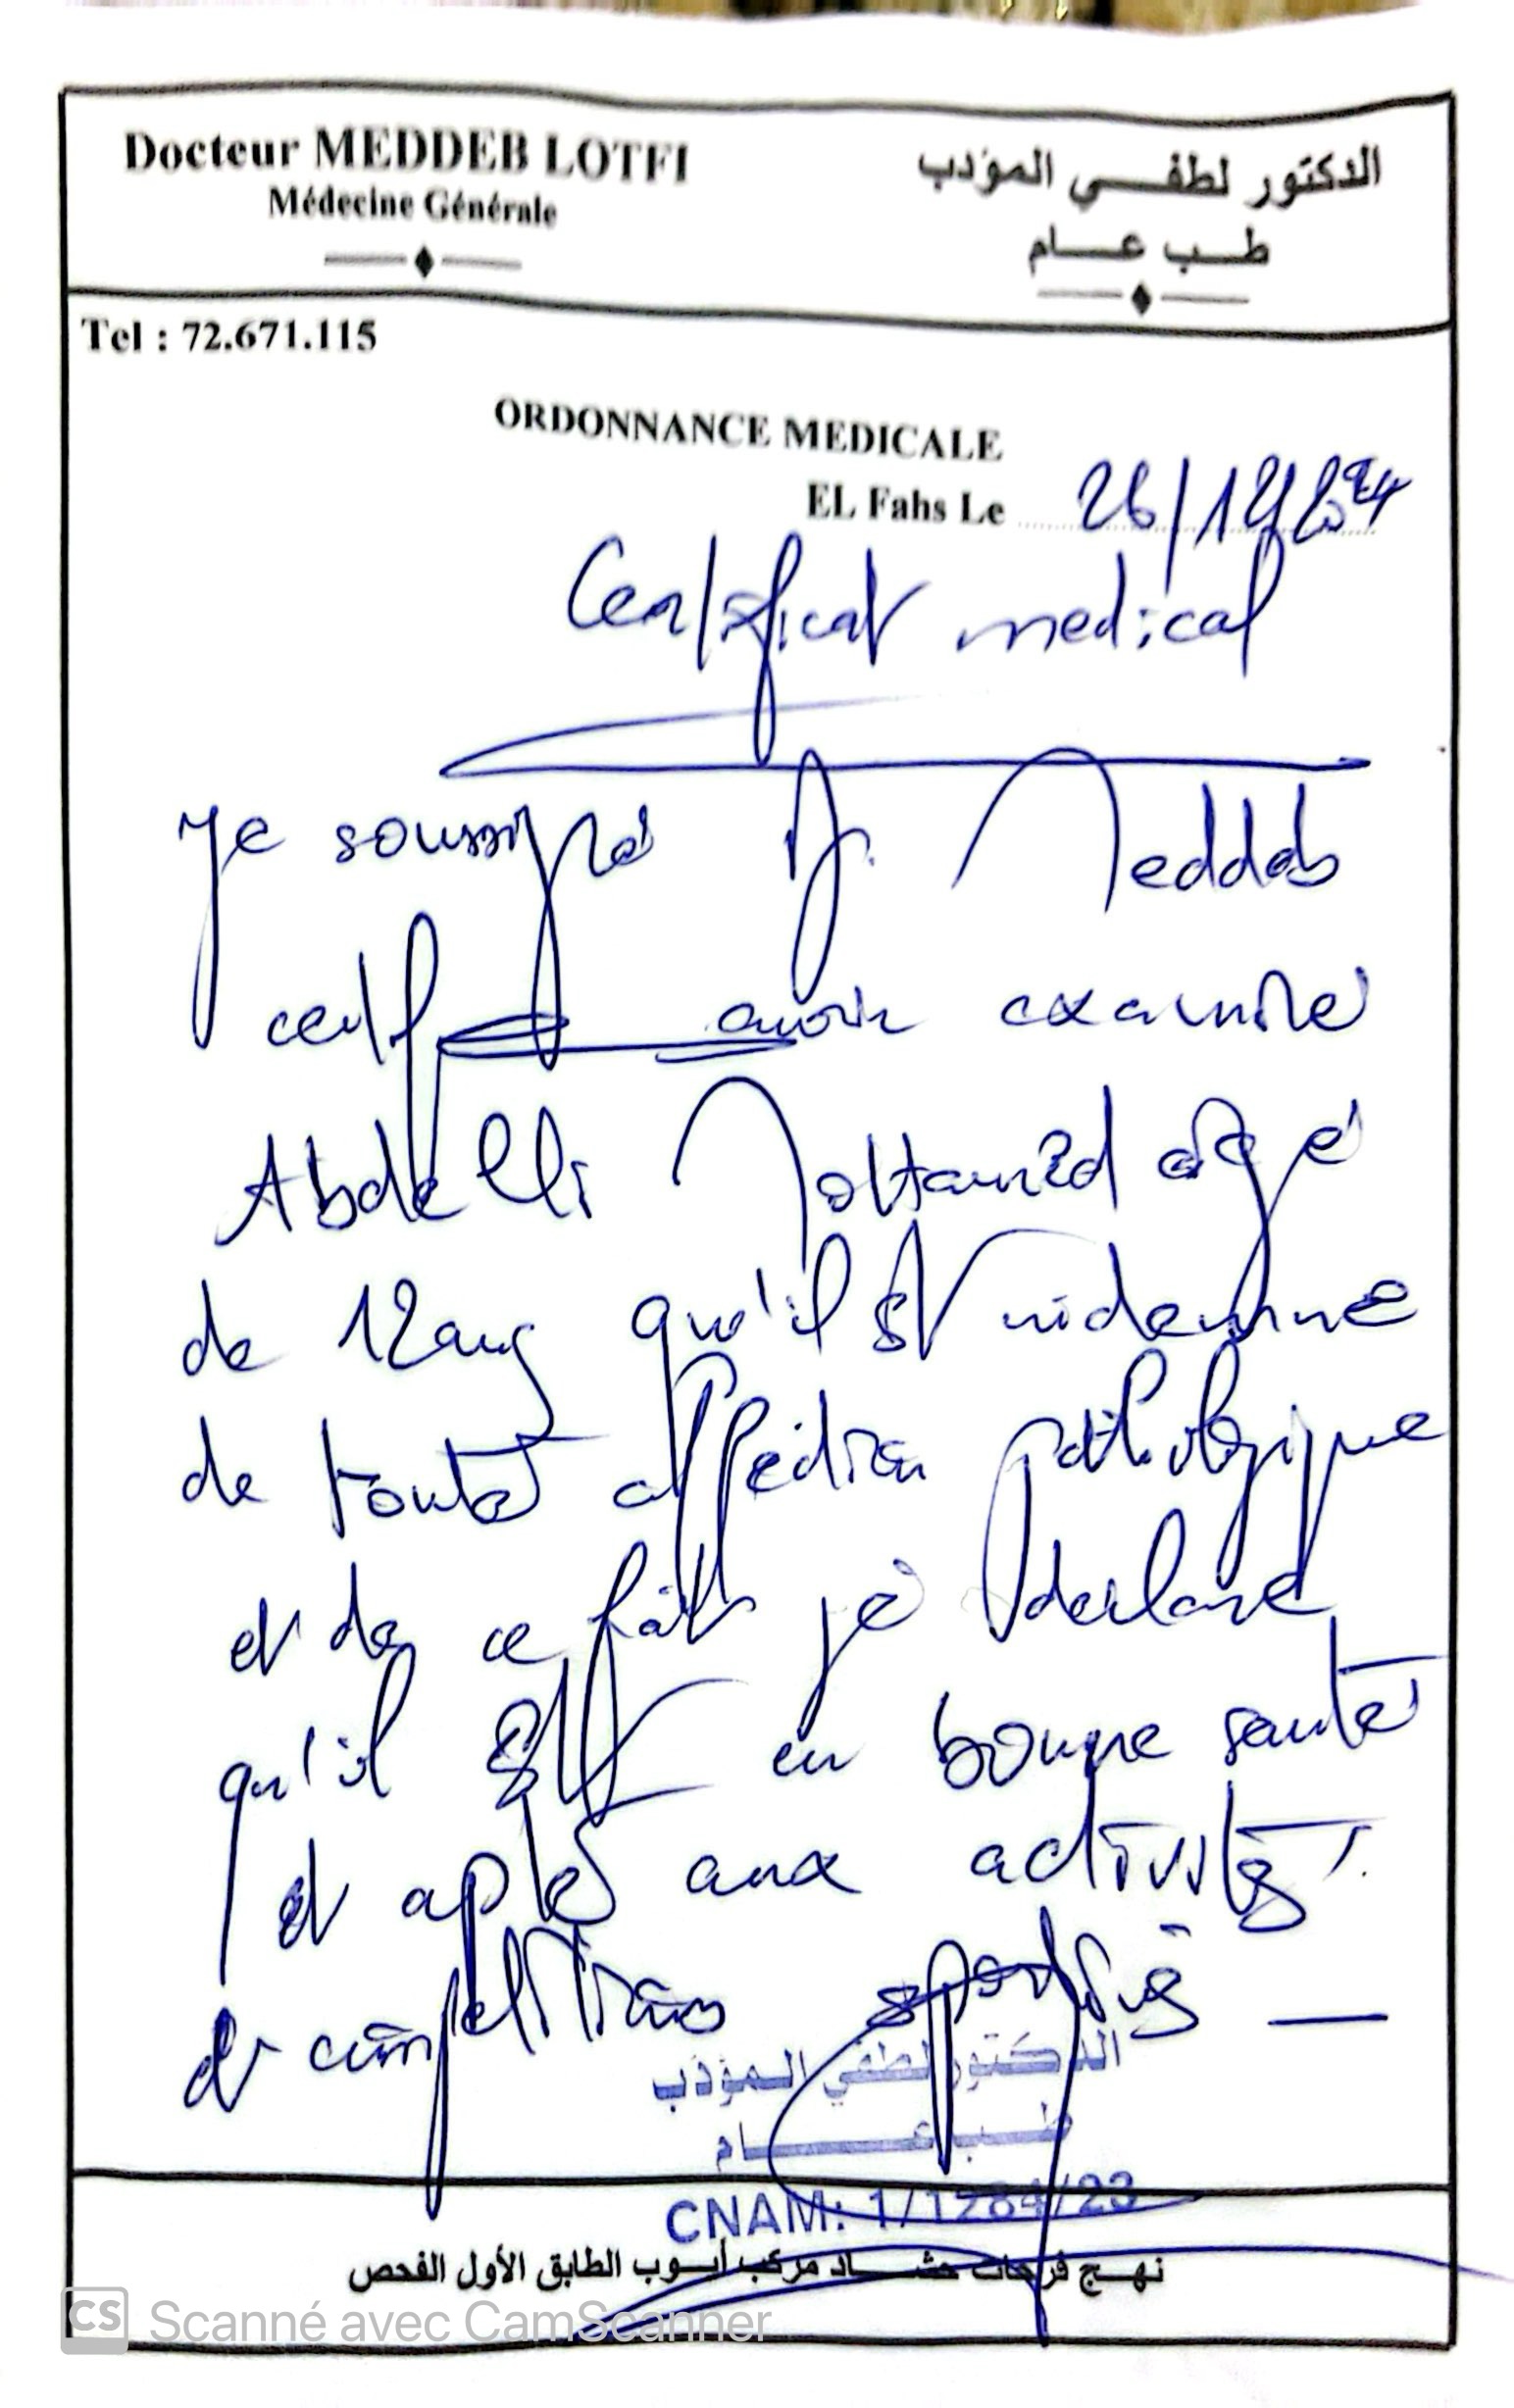 Docteur MEDDEB LOTFI
Médecine Générale
الدكتور لطفي المؤدب
طب عام
Tel : 72.671.115
ORDONNANCE MEDICALE
EL Fahs Le 26/12/2024
Certificat medical
Je soussigné Dr. Meddeb
certifie avoir examiné
Abdelli Mohamed agé
de 12 ans qu'il est indemne
de toute affection pathologique
et de ce fait je declare
qu'il est en bonne santé
et apte aux activités
et compétitions sportives
الدكتور لطفي المؤدب
طب عام
CNAM: 1/1284/23
نهج فرحات حشاد مركب أيوب الطابق الأول الفحص
CS Scanné avec CamScanner